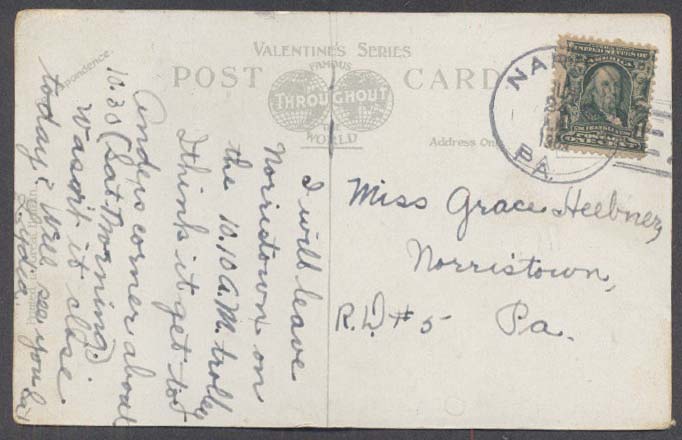 VALENTINE'S SERIES
FAMOUS
THROUGHOUT
WORLD
POST CARD
Address Only
NA
PA.
AMERICA
Miss Grace Heebner,
Norristown,
R.D. #5 Pa.
I will leave
Norristown on
the 10.10 A.M. trolley
I think it get to
Anders corner about
10.30 (Sat Morning.)
Wasn't it close
today? Will see you Sat
Lydia.